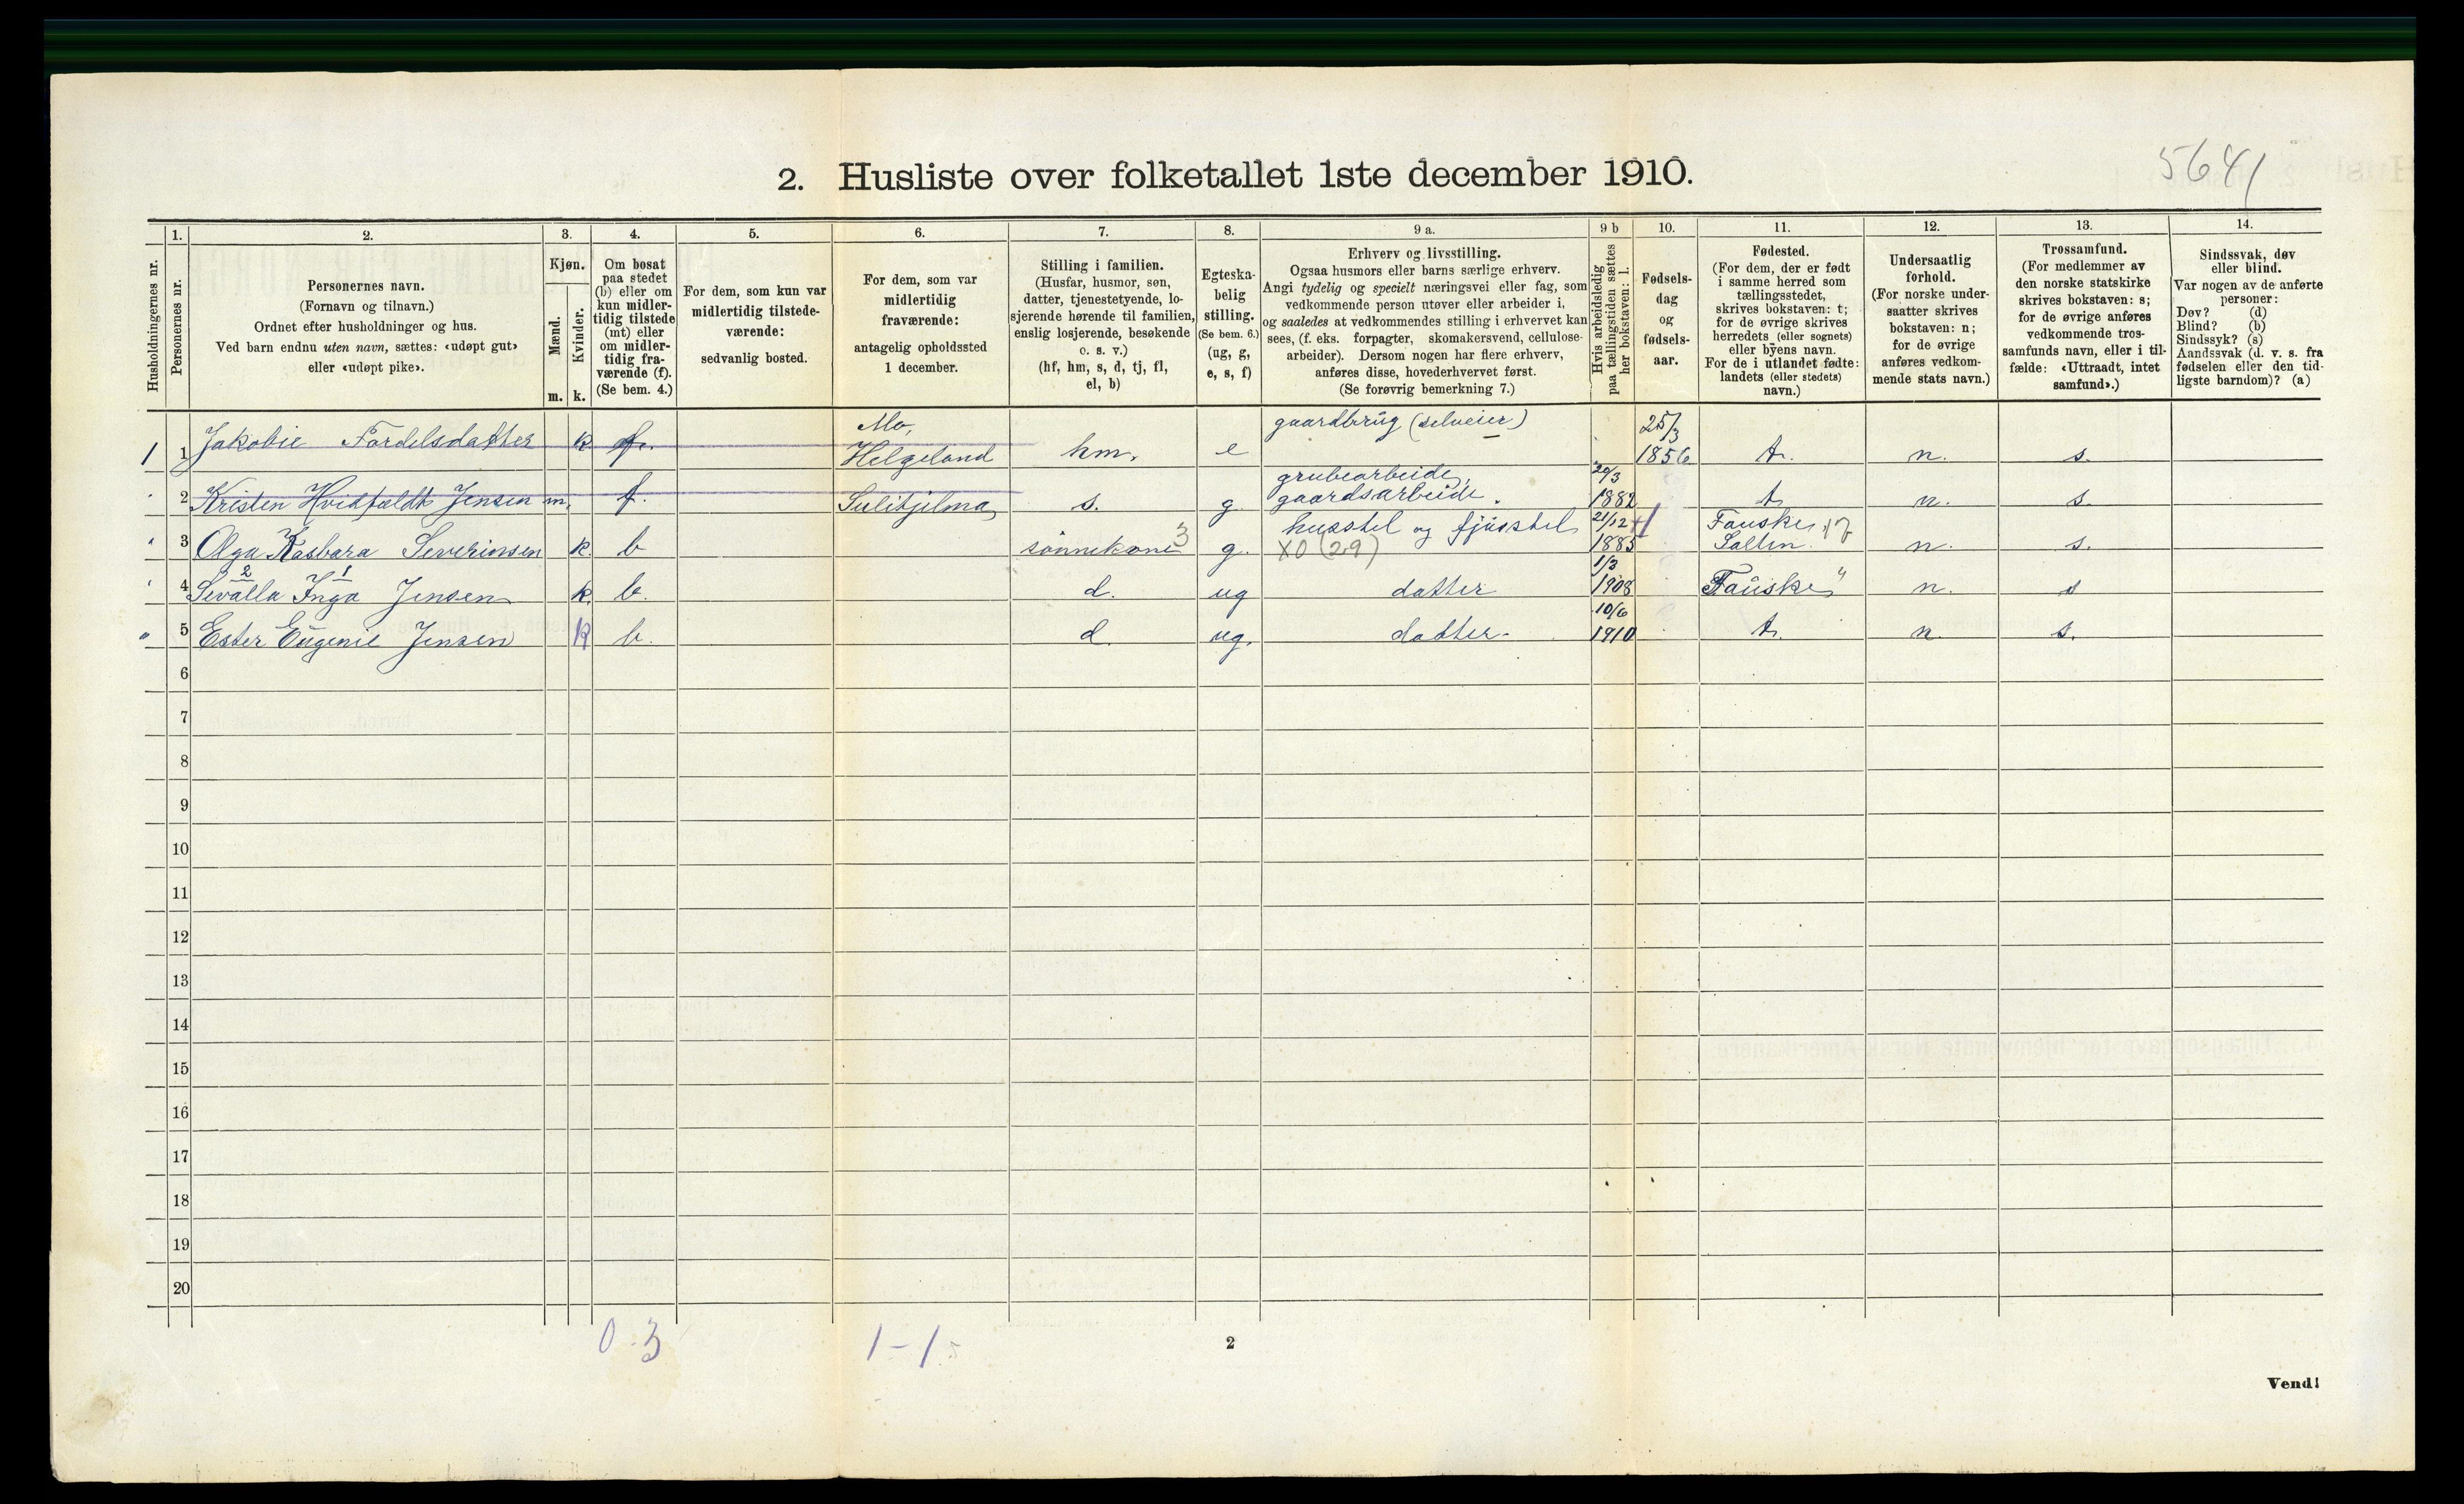 5641
2. Husliste over folketallet 1ste december 1910.
Husholdningernes nr.
1.
Personernes nr.
2.
Personernes navn.
(Fornavn og tilnavn.)
Ordnet efter husholdninger og hus.
Ved barn endnu uten navn, sættes: «udøpt gut»
eller «udøpt pike».
3.
Kjøn.
Mænd.
Kvinder.
m. k.
4.
Om bosat
paa stedet
(b) eller om
kun midler-
tidig tilstede
(mt) eller
om midler-
tidig fra-
værende (f).
(Se bem. 4.)
5.
For dem, som kun var
midlertidig tilstede-
værende:
sedvanlig bosted.
6.
For dem, som var
midlertidig
fraværende:
antagelig opholdssted
1 december.
7.
Stilling i familien.
(Husfar, husmor, søn,
datter, tjenestetyende, lo-
sjerende hørende til familien,
enslig losjerende, besøkende
o. s. v.)
(hf, hm, s, d, tj, fl,
el, b)
8.
Egteska-
belig
stilling.
(Se bem. 6.)
(ug, g,
e, s, f)
9 a.
Erhverv og livsstilling.
Ogsaa husmors eller barns særlige erhverv.
Angi tydelig og specielt næringsvei eller fag, som
vedkommende person utøver eller arbeider i,
og saaledes at vedkommendes stilling i erhvervet kan
sees, (f. eks. forpagter, skomakersvend, cellulose-
arbeider). Dersom nogen har flere erhverv,
anføres disse, hovederhvervet først.
(Se forøvrig bemerkning 7.)
9 b
Hvis arbeidsledig
paa tællingstiden sættes
her bokstaven: l.
10.
Fødsels-
dag
og
fødsels-
aar.
11.
Fødested.
(For dem, der er født
i samme herred som
tællingsstedet,
skrives bokstaven: t;
for de øvrige skrives
herredets (eller sognets)
eller byens navn.
For de i utlandet fødte:
landets (eller stedets)
navn.)
12.
Undersaatlig
forhold.
(For norske under-
saatter skrives
bokstaven: n;
for de øvrige
anføres vedkom-
mende stats navn.)
13.
Trossamfund.
(For medlemmer av
den norske statskirke
skrives bokstaven: s;
for de øvrige anføres
vedkommende tros-
samfunds navn, eller i til-
fælde: «Uttraadt, intet
samfund».)
14.
Sindssvak, døv
eller blind.
Var nogen av de anførte
personer:
Døv? (d)
Blind? (b)
Sindssyk? (s)
Aandssvak (d. v. s. fra
fødselen eller den tid-
ligste barndom)? (a)
1 1 Jakobie Fordelsdatter k f. Mo, Helgeland hm. e gaardbrug (selveier) 25/3 1856 t. n. s.
" 2 Kristen Hvidfeldt Jensen m. f. Sulitjelma s. g grubearbeide, gaardsarbeide. 20/3 1882 t n. s.
" 3 Olga Kasbara Severinsen k. b sønnekone 3 g. husstel og fjøsstel XO (29) 21/12 1885 Fauske, Salten. 17 n. s.
" 4 2 1 Sevalla Inga Jensen k. b. d. ug datter 1/3 1908 Fauske " n. s
" 5 Ester Eugenie Jensen k b. d. ug. datter. 10/6 1910 t. n. s.
6
7
8
9
10
11
12
13
14
15
16
17
18
19
20
0 - 3
1 - 1
2
Vend!